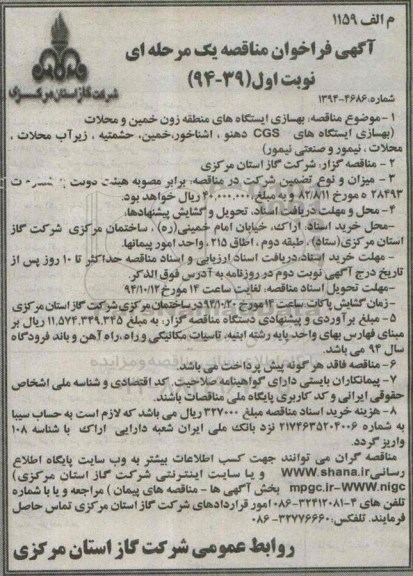 م الف ۱۱۵۹
آگهی فراخوان مناقصه یک مرحله ای
نوبت اول(۳۹-۹۴)
شرکت گاز استان مرکزی
شماره:۴۶۸۶-۱۳۹۴
۱-موضوع مناقصه: بهسازی ایستگاه های منطقه زون خمین و محلات
(بهسازی ایستگاه های CGS دهنو ، اشناخور،خمین، حشمتیه ، زیرآب محلات ،
محلات ، نیمور و صنعتی نیمور)
۲- مناقصه گزار: شرکت گاز استان مرکزی
۳ - میزان و نوع تضمین شرکت در مناقصه: برابر مصوبه هیئت دولت
۲۸۴۹۳ ه مورخ ۸۲/۸/۱۱ و به مبلغ ۴۰۰,۰۰۰,۰۰۰ ریال خواهد بود.
۴- محل و مهلت دریافت اسناد، تحویل و گشایش پیشنهادها:
-محل خرید اسناد: اراک، خیابان امام خمینی(ره) ، ساختمان مرکزی شرکت گاز
استان مرکزی(ستاد)، طبقه دوم ، اطاق ۲۱۵ ، واحد امور پیمانها.
- مهلت خرید اسناد:دریافت اسناد ارزیابی و اسناد مناقصه حداکثر تا ۱۰ روز پس از
تاریخ درج آگهی نوبت دوم در روزنامه به آدرس فوق الذکر.
-مهلت تحویل اسناد مناقصه: لغایت ساعت ۱۴ مورخ ۹۴/۱۰/۱۲
-زمان گشایش پاکات: ساعت ۱۴ مورخ ۹۴/۱۰/۲۰ در ساختمان مرکزی شرکت گاز استان مرکزی
۵- مبلغ برآوردی و پیشنهادی دستگاه مناقصه گزار: به مبلغ ۱۱,۵۷۴,۳۴۹,۳۴۵ ریال بر
مبنای فهارس بهای واحد پایه رشته ابنیه، تاسیات مکانیکی وراه، راه آهن و باند فرودگاه
سال ۹۴ می باشد.
۶- مناقصه فاقد هر گونه پیش پرداخت می باشد.
۷- پیمانکاران بایستی دارای گواهینامه صلاحیت، کد اقتصادی و شناسه ملی اشخاص
حقوقی ایرانی و کد کاربری پایگاه ملی مناقصات باشند.
۸- هزینه خرید اسناد مناقصه مبلغ ۳۲۷۰۰۰ ریال می باشد که لازم است به حساب سیبا
به شماره ۲۱۷۴۶۳۵۲۰۴۰۰۶ نزد بانک ملی ایران شعبه دارایی اراک با شناسه ۱۰۸
واریز گردد.
مناقصه گران می توانند جهت کسب اطلاعات بیشتر به وب سایت پایگاه اطلاع
رسانی WWW.shana.ir و یا سایت اینترنتی شرکت گاز استان مرکزی)
mpgc.ir-WWW.nigc بخش آگهی ها - مناقصه های پیمان ) مراجعه و یا با شماره
تلفن های ۴-۳۲۴۱۲۰۸۱-۰۸۶ امور قراردادهای شرکت گاز استان مرکزی تماس حاصل
فرمایند. تلفکس:۳۲۷۷۶۶۶۰- ۰۸۶
روابط عمومی شرکت گاز استان مرکزی